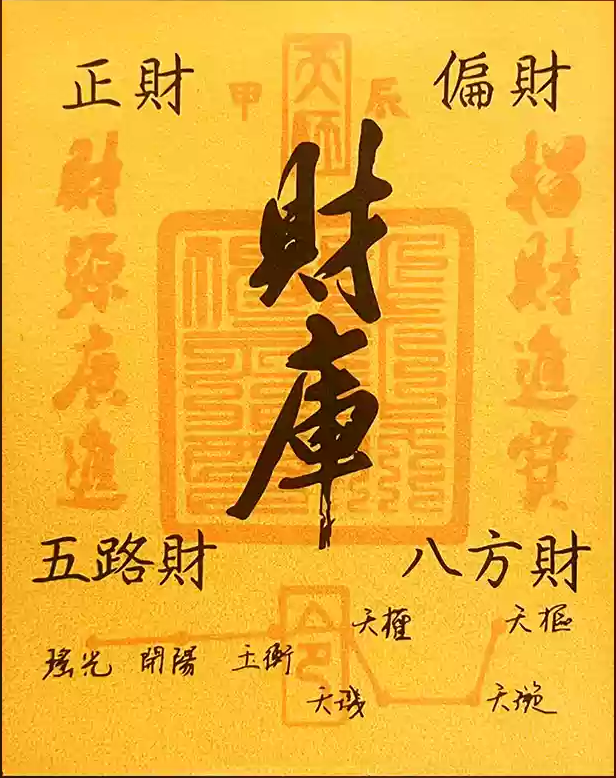 正財
偏財
天師
甲辰
招財進寶
財庫
財源廣進
五路財
八方財
天權
天樞
瑤光 開陽 玉衡
天璣
天璇